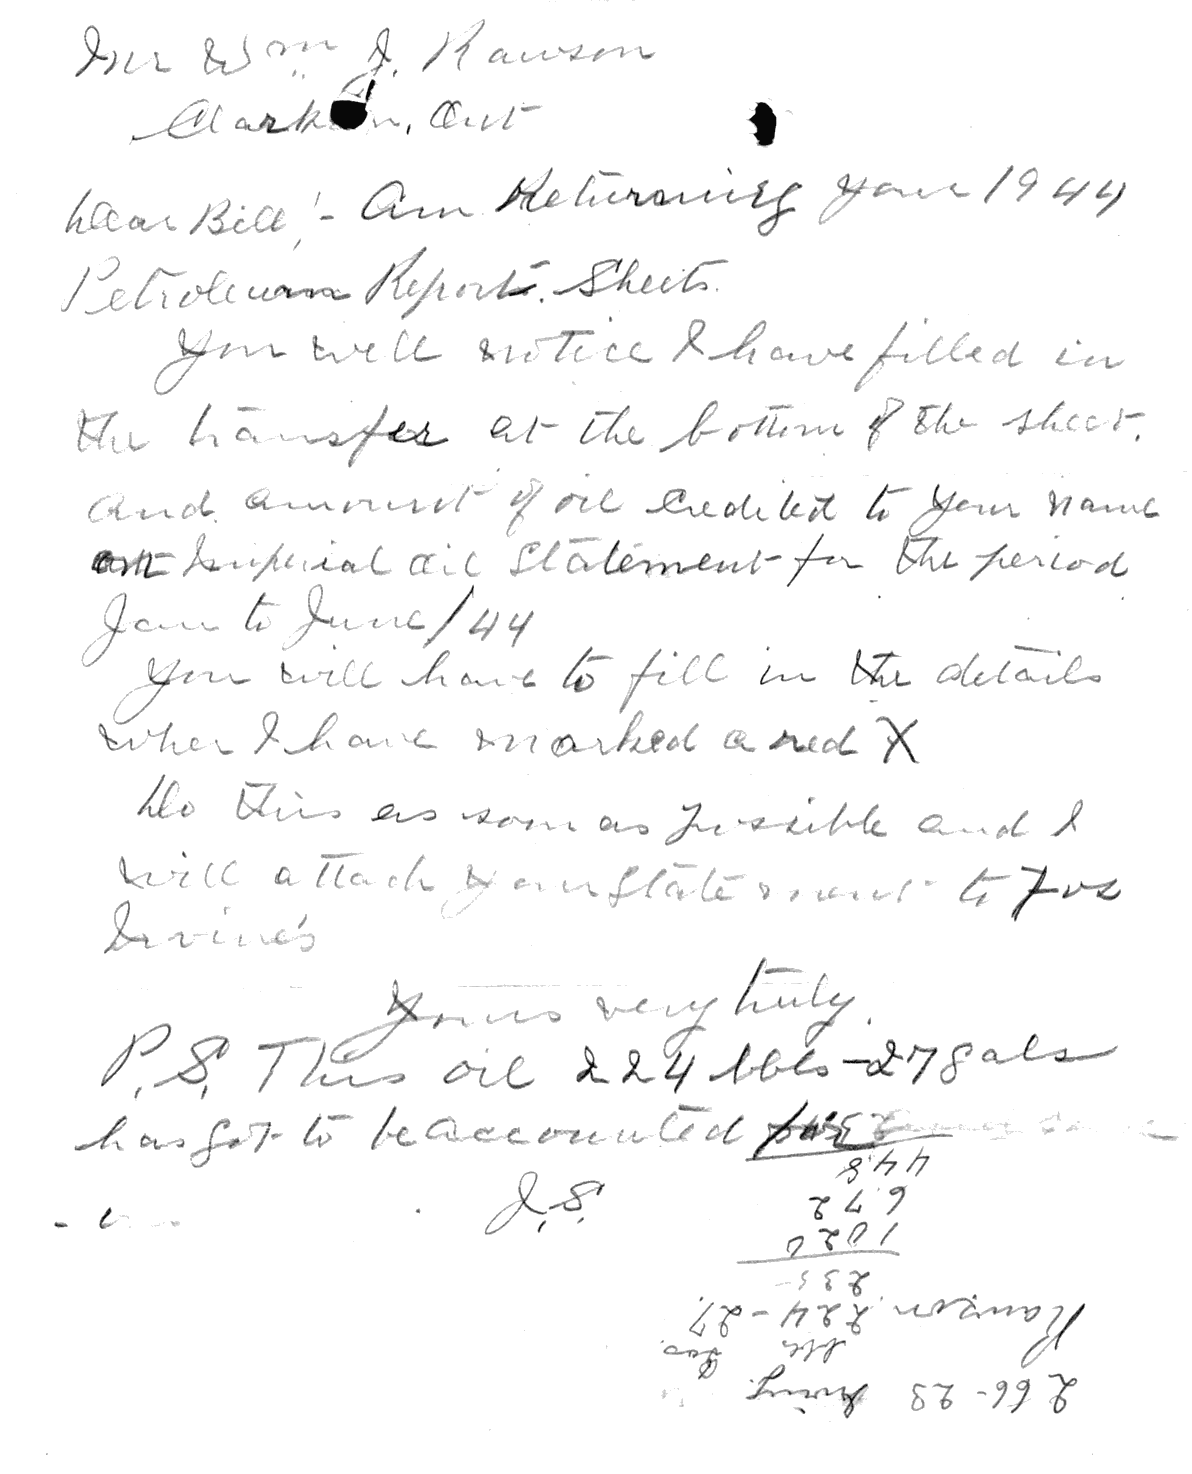 Mr Wm J. Rawson
Clarkson, Ont
Dear Bill! - Am Returning your 1944
Petroleum Report. Sheets.
You will notice I have filled in
the transfer at the bottom of the sheet.
and amount of oil credited to your name
on Imperial Oil Statement for the period
Jan to June/44
You will have to fill in the details
wher I have marked a red X
Do this as soon as possible and I
will attach your Statement to
Irvine's
Yours very truly.
P.S. This oil 224 bbls - 27 gals
has got to be accounted for
J.S.
448
672
235
Rawson. 224 - 27.
bls
266 - 23 Irving.